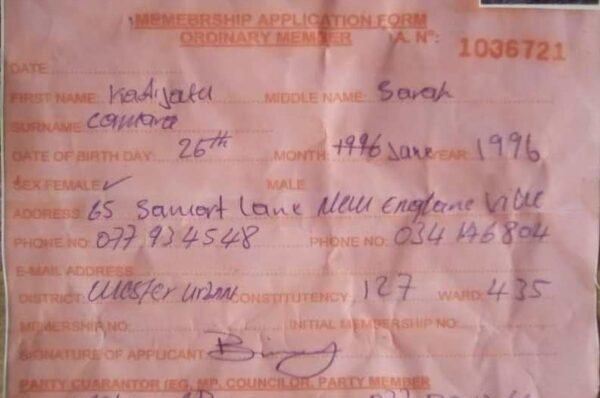 MEMEBRSHIP APPLICATION FORM
ORDINARY MEMBER A. Nº: 1036721
DATE
FIRST NAME: Kadijatu MIDDLE NAME: Sarah
SURNAME: Camara
DATE OF BIRTH DAY: 26th MONTH: 1996 June YEAR: 1996
SEX FEMALE ✓ MALE
ADDRESS: 65 Samort Lane New Englane Ville
PHONE NO: 077 934548 PHONE NO: 034 146804
E-MAIL ADDRESS
DISTRICT: Wester Urban CONSTITUTENCY 127 WARD: 435
MEMERSHIP NO: INITIAL MEMBERSHIP NO:
SIGNATURE OF APPLICANT
PARTY GUARANTOR (EG, MP, COUNCILOR, PARTY MEMBER